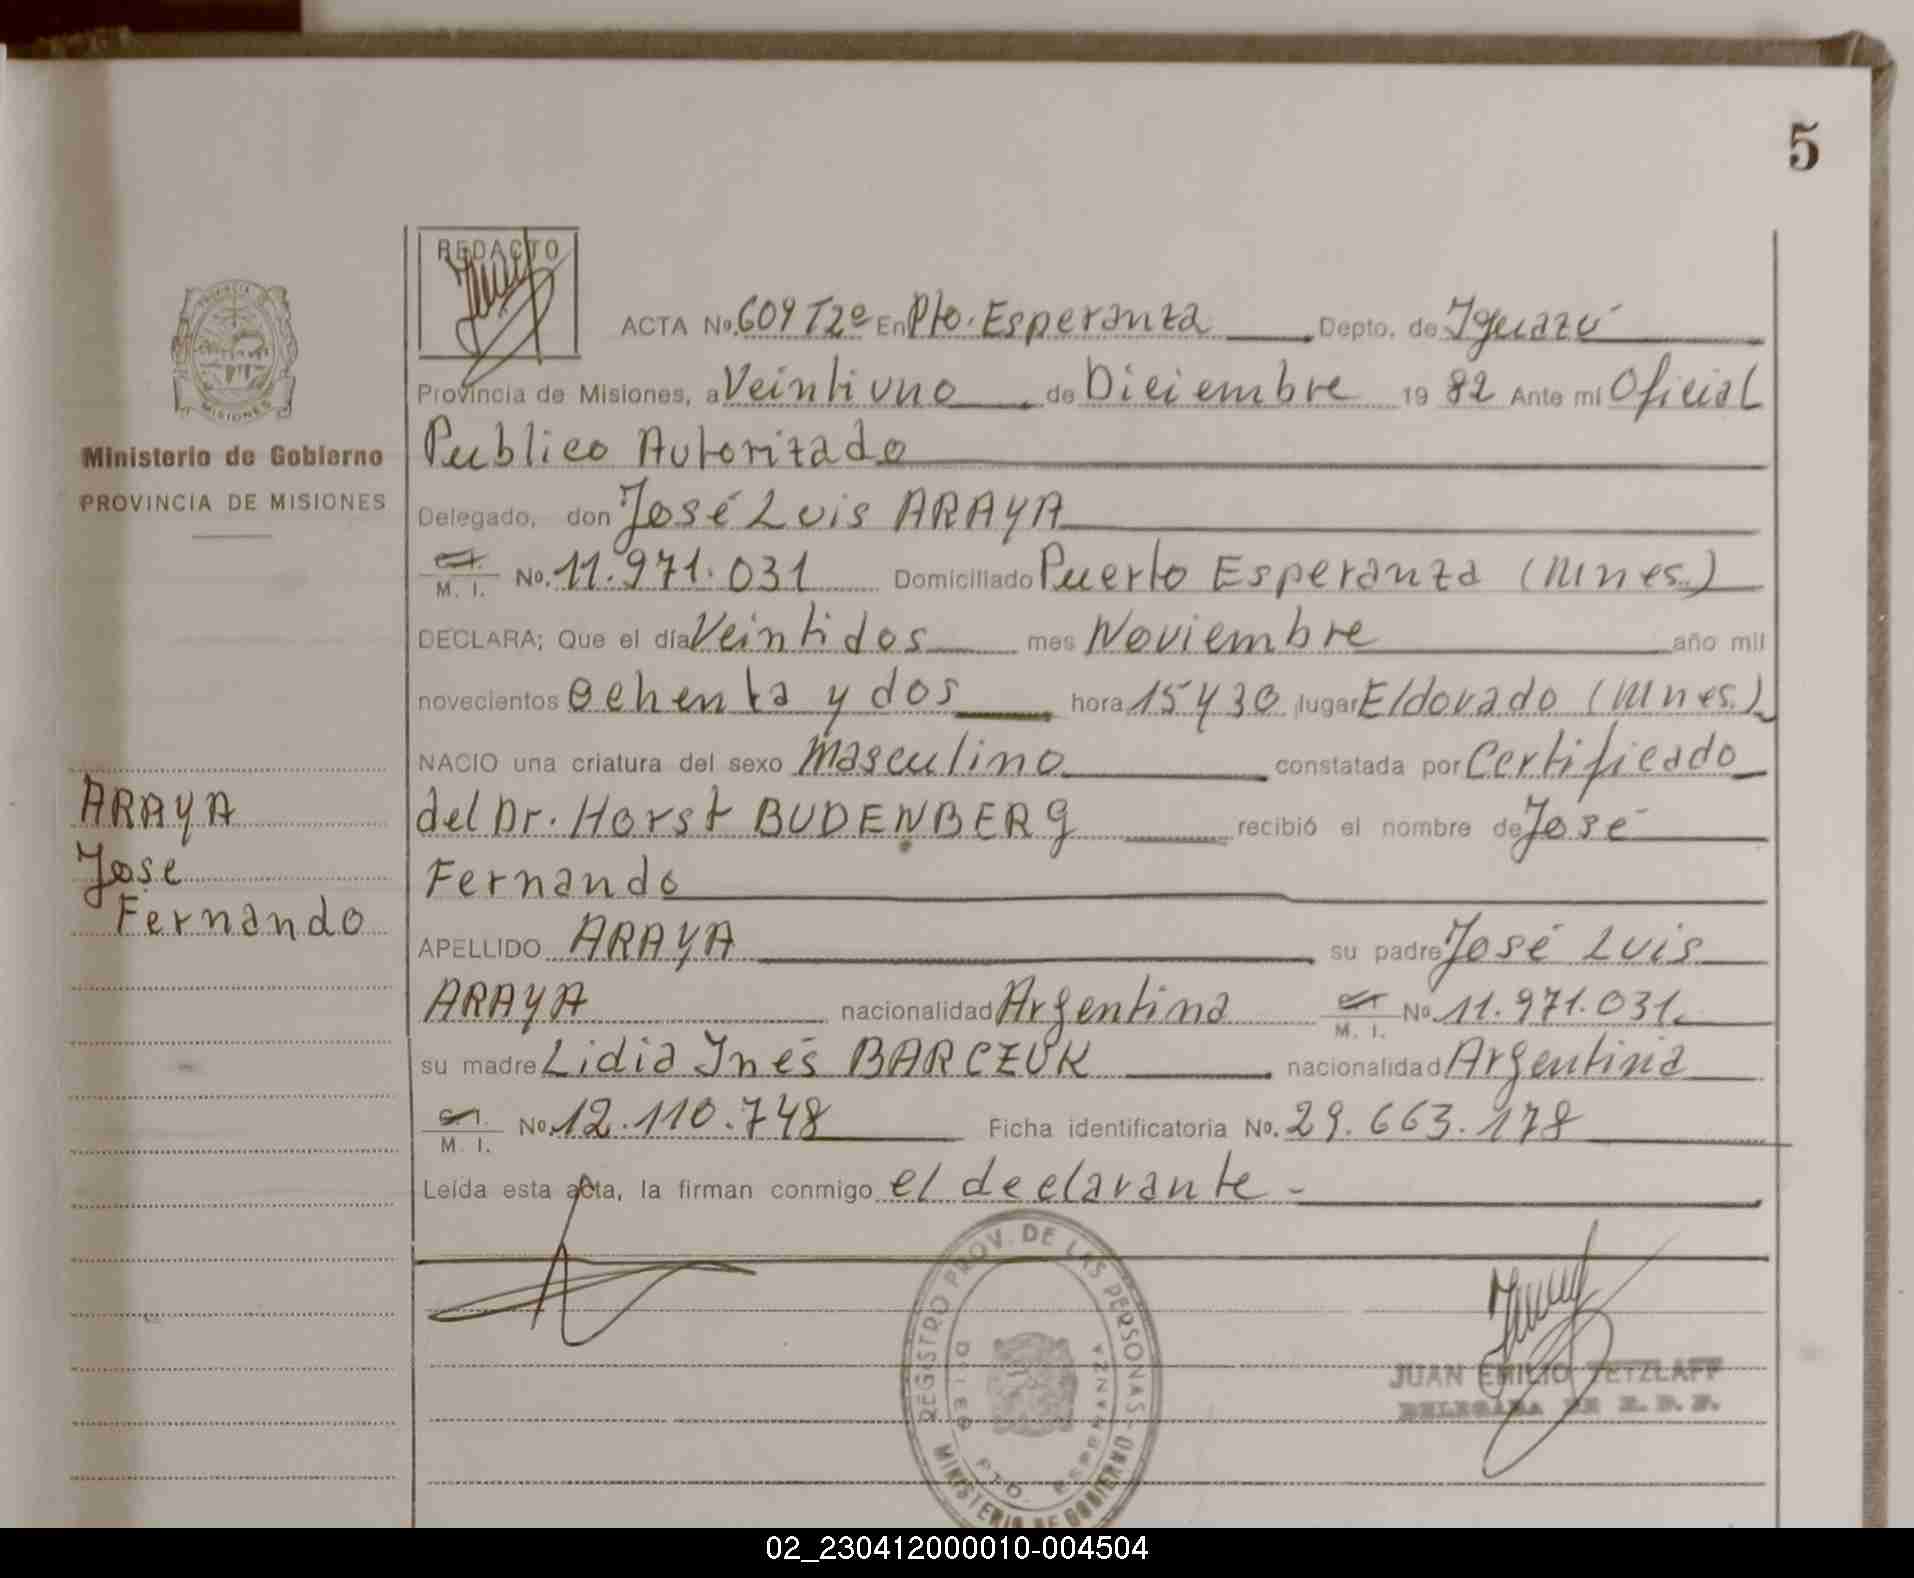 5
REDACTO
ACTA No. 609 T2º En Pto. Esperanza Depto. de Iguazú
Provincia de Misiones, a Veintiuno de Diciembre 1982 Ante mi Oficial
Publico Autorizado
Delegado, don José Luis ARAYA
M. I. No. 11.971.031 Domiciliado Puerto Esperanza (Mnes.)
DECLARA; Que el día Veintidos mes Noviembre año mil
novecientos ochenta y dos hora 15 y 30 lugar Eldorado (Mnes.)
NACIO una criatura del sexo masculino constatada por Certificado
del Dr. Horst BUDENBERG recibió el nombre de José
Fernando
APELLIDO ARAYA su padre José Luis
ARAYA nacionalidad Argentina M. I. No. 11.971.031.
su madre Lidia Inés BARCZUK nacionalidad Argentina
M. I. No. 12.110.748 Ficha identificatoria No. 29.663.178
Leída esta acta, la firman conmigo el declarante.-
PROVINCIA DE
MISIONES
Ministerio de Gobierno
PROVINCIA DE MISIONES
ARAYA
Jose
Fernando
REGISTRO PROV. DE LAS PERSONAS-
MINISTERIO DE GOBIERNO
PTO. ESPERANZA
JUAN EMILIO TETZLAFF
02_230412000010-004504